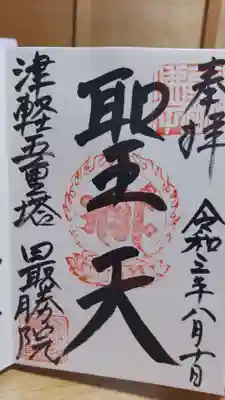 奉拝
令和三年八月十日
聖天
津軽五重塔 最勝院